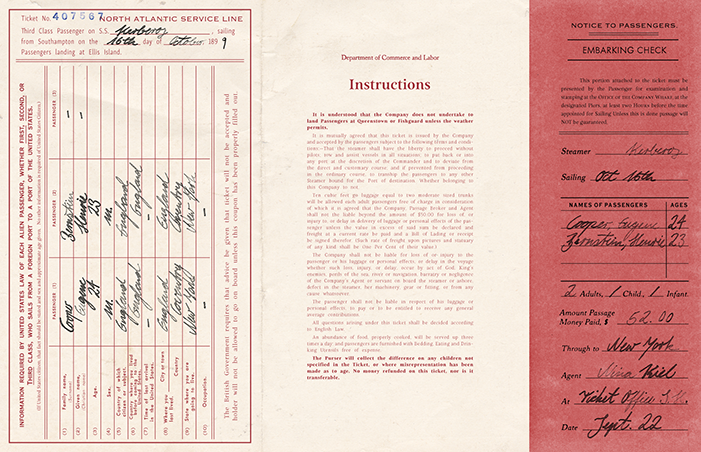 Ticket No. 407567 NORTH ATLANTIC SERVICE LINE
Third Class Passenger on S.S. Kerberos, sailing
from Southampton on the 16th day of October, 1899
Passengers landing at Ellis Island.
INFORMATION REQUIRED BY UNITED STATES LAW OF EACH ALIEN PASSENGER, WHETHER FIRST, SECOND, OR
THIRD CLASS, WHO SAILS FROM A FOREIGN PORT TO A PORT OF THE UNITED STATES.
PASSENGER (1) PASSENGER (2) PASSENGER (3)
(1) Family name, Cooper Bernstein –
(2) Given name, Eugene –
(3) Age. 24 23
(4) Sex. m. m.
(5) Country of which citizen or subject. England England
(6) England England
(7) Time of last arrival in the United States. – –
(8) Where you last lived. City or town Country England Coventry
(9) State where you are going to live New York New York
(10) Occupation. – –
The British Government requires that advice be given that ticket will not be accepted and
holder will not be allowed to go on board unless this coupon has been properly filled out.
Department of Commerce and Labor
Instructions
It is understood that the Company does not undertake to
land Passengers at Queenstown or Fishguard unless the weather
permits.
It is mutually agreed that this ticket is issued by the Company
and accepted by the passengers subject to the following items and condi-
tions:-That the steamer shall have the liberty to proceed without
pilots; tow and assist vessels in all situations; to put back or into
any port at the discretion of the Commander and to deviate from
the direct and customary course, and if prevented from proceeding
in the ordinary course, to tranship the passengers to any other
Steamer bound for the Port of destination. Whether belonging to
this Company to not.
Ten cubic feet luggage equal to two moderate sized trunks
will be allowed each adult passenger free of charge in consideration
of which it is agreed that the Company, Passage Broker and Agent
shall not the liable beyond the amount of $50.00 for loss of, or
injury to, or delay in delivery of luggage or personal effects of the pas-
senger unless the value in excess of said sum be declared and
freight at a current rate be paid and a Bill of Lading or receipt
be signed therefor. (Such rate of freight upon pictures and statuary
of any kind shall be One Per Cent of their value.)
The Company shall not be liable for loss of or injury to the
passenger or his luggage or personal effects, or delay in the voyage
whether such loss, injury, or delay, occur by act of God, King's
enemies, perils of the sea, river or navigation, barratry or negligence
of the Company's Agent or servant on board the steamer or ashore,
defect in the steamer, her machinery, gear or fitting, or from any
cause whatsoever.
The passenger shall not be liable in respect of his luggage or
personal effects, to pay or to be entitled to receive any general
average contributions.
All questions arising under this ticket shall be decided according
to English Law
An abundance of food, properly cooked, will be served up three
times a day and passengers are furnished with Bedding, Eating and Drink-
ing Utensils free of expense.
The Purser will collect the difference on any children not
specified in the Ticket, or where misrepresentation has been
made as to age. No money refunded on this ticket, nor is it
transferable.
NOTICE TO PASSENGERS.
EMBARKING CHECK
This portion attached to the ticket must be
presented by the Passenger for examination and
stamping at the OFFICE OF THE COMPANY WHARF, at
the designated Piers, at least two HOURS before the time
appointed for Sailing Unless this is done passage will
NOT be guaranteed.
Steamer Kerberos
Sailing Oct 16th
NAMES OF PASSENGERS AGES
Cooper, Eugene 24
Bernstein, 23
2 Adults, 1 Child, 1 Infant
Amount Passage
Money Paid, $ 52.00
Through to New York
Agent Nina Kiel
At Ticket Office
Date Sept. 22